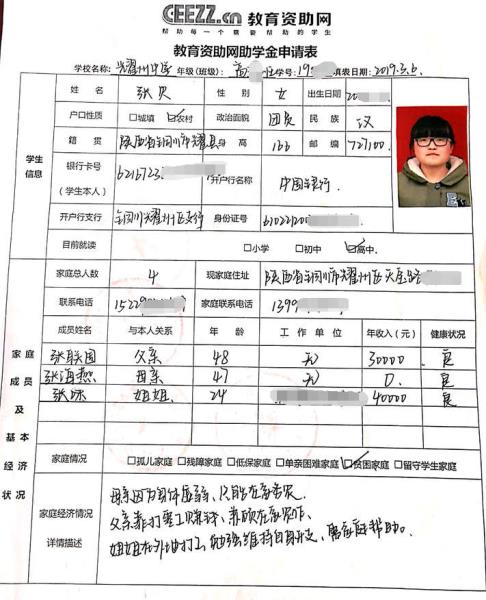 CEEZZ.cn 教育资助网
帮助每一个需要帮助的学生
教育资助网助学金申请表
学校名称: 耀州中学 年级(班级): 高 学号: 19 填表日期: 2019.3.6.
姓名 张贝 性别 女 出生日期 20
户口性质 □城镇 ☑农村 政治面貌 团员 民族 汉
籍贯 陕西省铜川市耀县 身高 166 邮编 727100
学生信息
银行卡号(学生本人) 6216723 开户行名称 中国银行.
开户行支行 铜川耀州区支行 身份证号 610221200
目前就读 □小学 □初中 ☑高中.
家庭总人数 4 现家庭住址 陕西省铜川市耀州区天宝路
联系电话 1522 家庭联系电话 1399
成员姓名 与本人关系 年龄 工作单位 年收入(元) 健康状况
张联国 父亲 48 无 30000 良
张海燕 母亲 47 无 0. 良
张 姐姐 24 40000 良
家庭成员及基本经济状况
家庭情况 □孤儿家庭 □残障家庭 □低保家庭 □单亲困难家庭 ☑贫困家庭 □留守学生家庭
家庭经济情况详情描述
母亲因为身体虚弱、只能在家务农.
父亲靠打零工赚钱、
姐姐在外地打工,勉强维持自身开支,